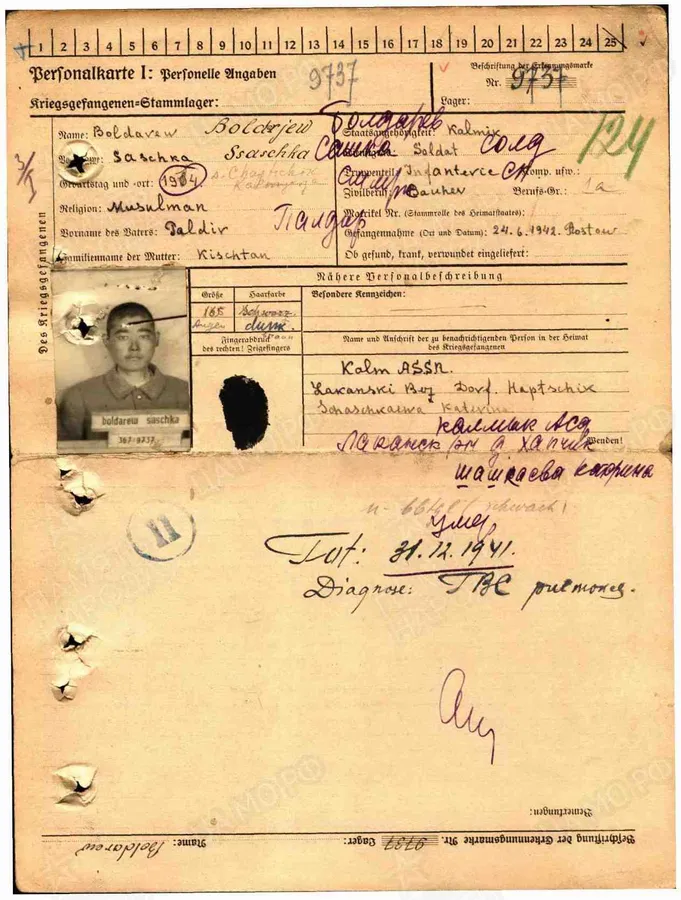 1 2 3 4 5 6 7 8 9 10 11 12 13 14 15 16 17 18 19 20 21 22 23 24 25
Personalkarte I: Personelle Angaben
9737
Kriegsgefangenen=Stammlager:
Beschriftung der Erkennungsmarke
Nr. 9737
Lager:
Des Kriegsgefangenen
Name: Boldarew Boldrjew Болдарев
Saschka Ssaschka Сашка
Geburtstag und =ort: 1904
Religion: Musulman
Vorname des Vaters: Paldir Палдар
Familienname der Mutter: Kischtan
Staatsangehörigkeit: Kalmik
Soldat солд
124
Infanterie Komp. usw.:
Zivilberuf: Bauher Berufs-Gr.: 1a
Matrikel Nr. (Stammrolle des Heimatstaates):
Gefangennahme (Ort und Datum): 24.6.1942. Rostow
Ob gesund, krank, verwundet eingeliefert:
Nähere Personalbeschreibung
Größe Haarfarbe Besondere Kennzeichen:
165 Schwarz
Augen dunk.
Fingerabdruck
des rechten! Zeigefingers
Name und Anschrift der zu benachrichtigenden Person in der Heimat
des Kriegsgefangenen
boldarew saschka
367 9737
Kalm ASSR.
Lakanski Dorf. Haptschik
Schaschkaewa Katerina
калмык Аса
Лаканск рн д Хапчик
Wenden!
шашкаева катрина
умер
II
Tot: 31.12.1941.
Diagnose: TBC pulmones.
Bemerkungen:
Beschriftung der Erkennungsmarke Nr. 9737 Lager: Name: Boldarew